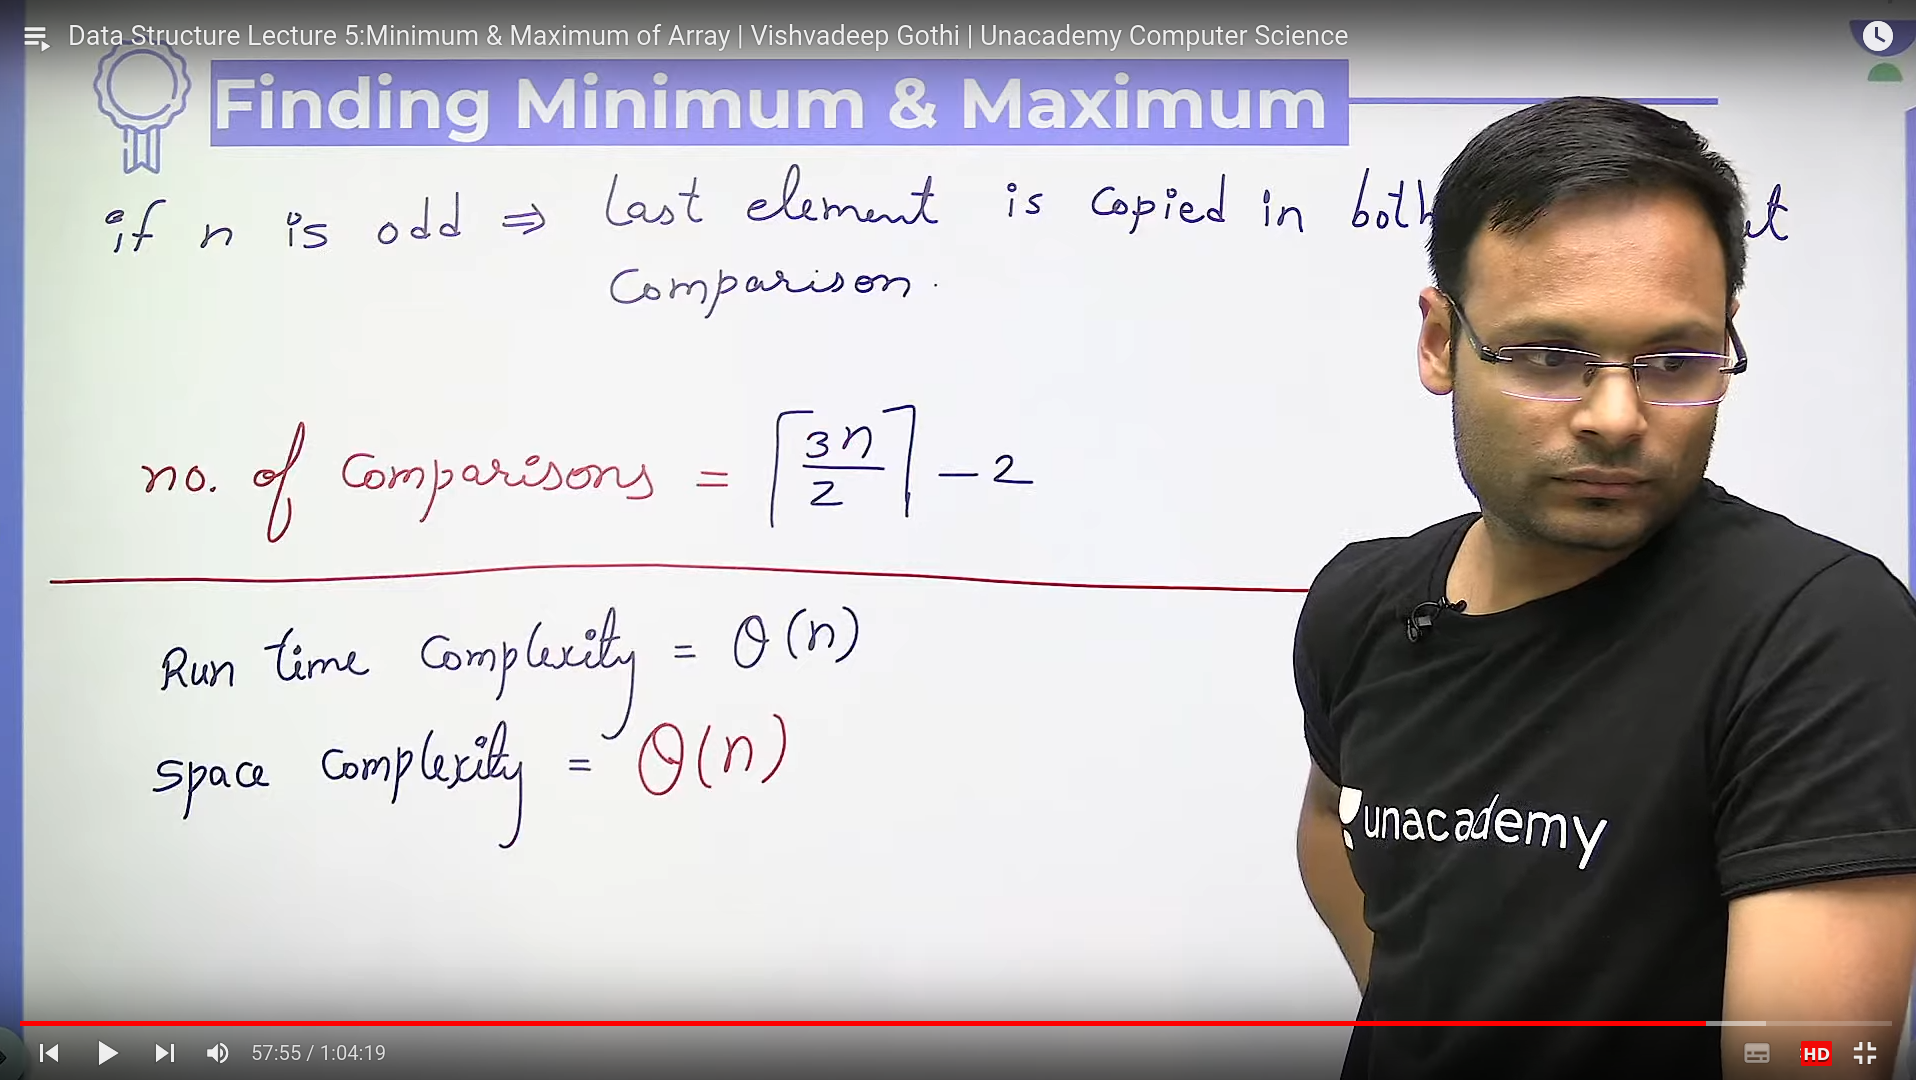 Data Structure Lecture 5:Minimum & Maximum of Array | Vishvadeep Gothi | Unacademy Computer Science
Finding Minimum & Maximum
if n is odd ⇒ last element is copied in both
comparison.
no. of comparisons = ⌈3n/2⌉ - 2
Run time complexity = θ(n)
space complexity = θ(n)
unacademy
57:55 / 1:04:19
HD